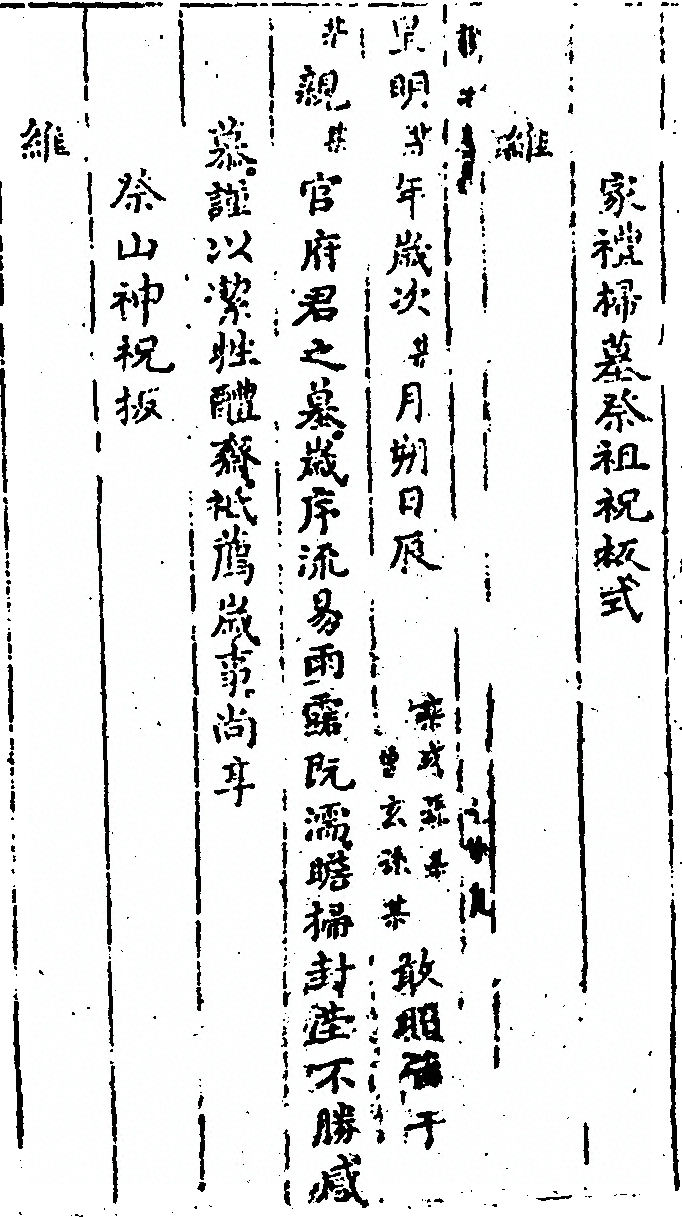 家禮掃墓祭祖祝板式
維
皇明某年歲次某月朔日辰 某孫某 曾玄孫某 敢昭告于
某親某官府君之墓歲序流易雨露既濡瞻掃封塋不勝感
慕謹以潔牲醴齋祗薦歲事尚享
祭山神祝板
維